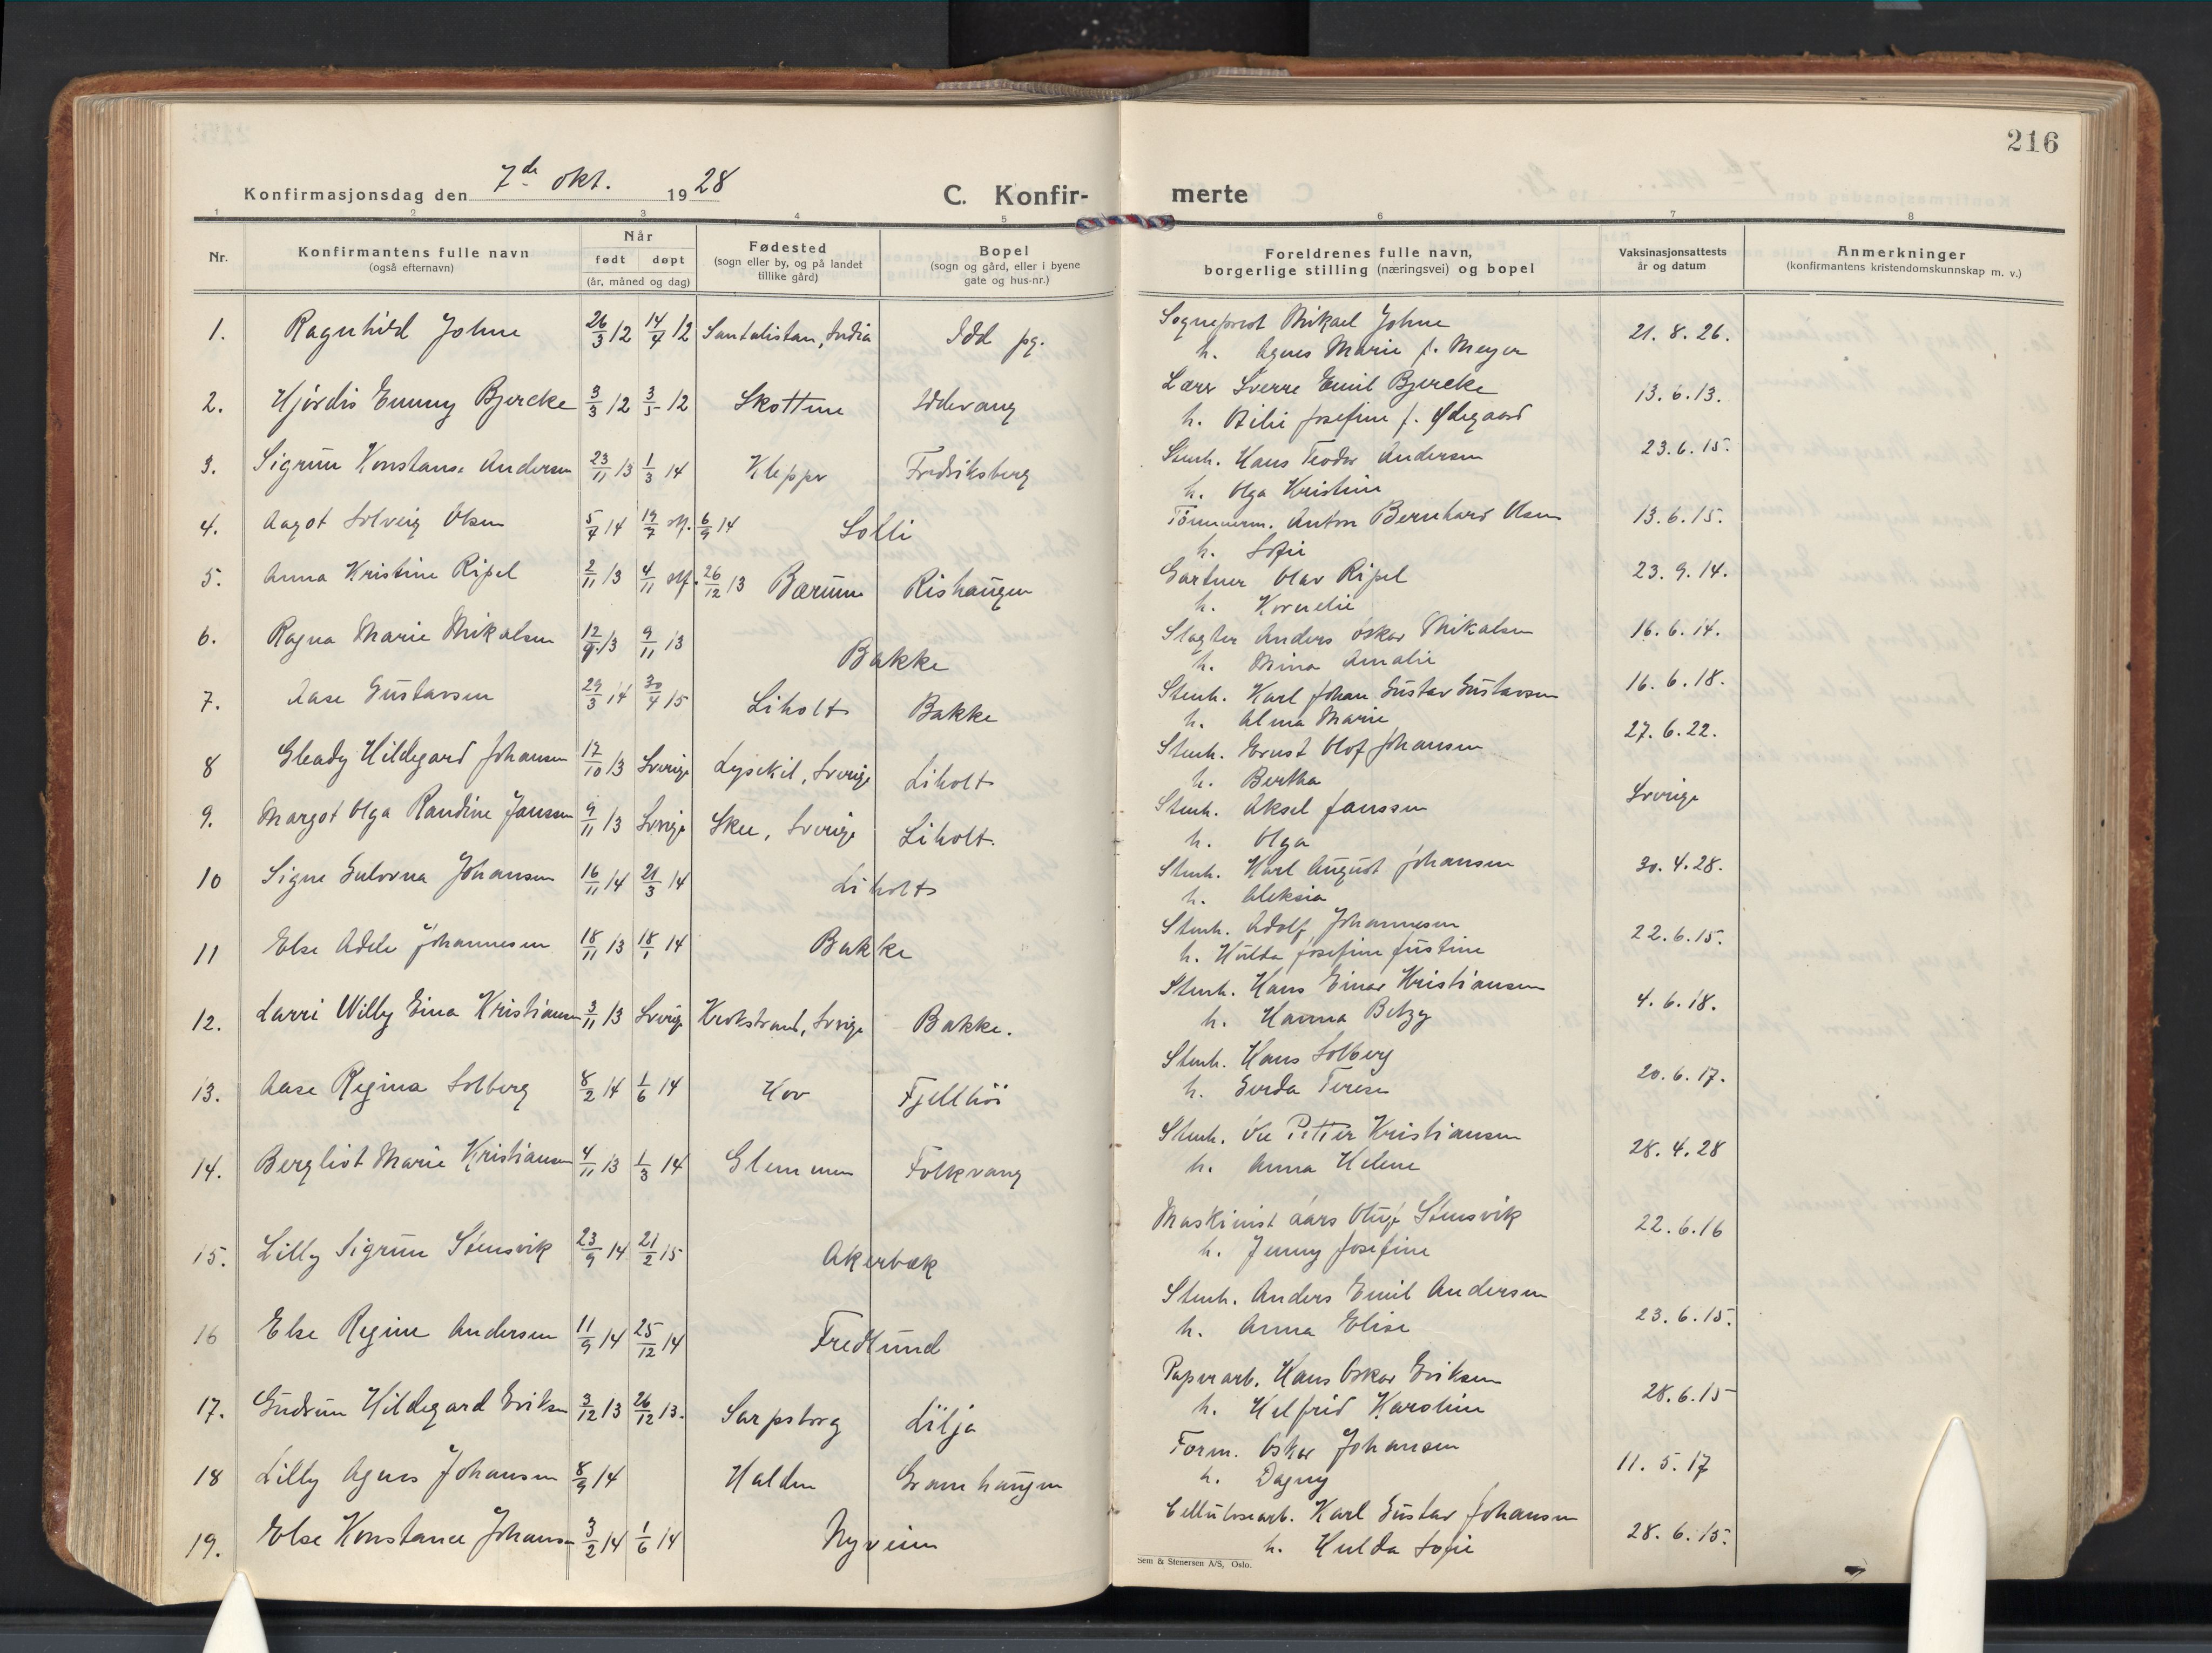 216
Konfirmasjonsdag den 7de okt. 1928
C. Konfir-
merte
1 2 3 4 5 6 7 8
Nr.
Konfirmantens fulle navn
(også efternavn)
Når
født døpt
(år, måned og dag)
Fødested
(sogn eller by, og på landet
tillike gård)
Bopel
(sogn og gård, eller i byene
gate og hus-nr.)
Foreldrenes fulle navn,
borgerlige stilling (næringsvei) og bopel
Vaksinasjonsattests
år og datum
Anmerkninger
(konfirmantens kristendomskunnskap m. v.)
1. Ragnhild Johne 26/3 12 14/4 12 Santalistan, India Idd pg. Sogneprest Mikael Johne 21. 8. 26.
h. Agnes Marie f. Meyer
2. Hjördis Emmy Bjercke 3/3 12 3/5 12 Skottene Iddevang Lærer Sverre Emil Bjercke 13. 6. 13.
h. Josefine f. Ødegaard
3. Sigrun Konstanse Andersen 23/11 13 1/3 14 Kleppe Fredriksberg Stenh. Hans Teodor Andersen 23. 6. 15.
h. Olga Kristine
4. Aagot Solveig Olsen 5/4 14 19/7 6/9 14 Solli Tömmerm. Anton Bernhard Olsen 13. 6. 15.
h. Sofie
5. Anna Kristine Ripel 2/11 13 4/11 26/12 13 Bærum Rishaugen Gartner Olav Ripel 23. 9. 14.
h. Kornelie
6. Ragna Marie Mikalsen 12/9 13 9/11 13 Bakke Slagter Anders Oskar Mikalsen 16. 6. 14.
h. Mina Amalie
7. Aase Gustavsen 29/3 14 30/4 15 Liholt Bakke Stenh. Karl Johan Gustav Gustavsen 16. 6. 18.
h. Alma Marie
8 Gleady Hildegard Johansen 17/10 13 Sverige Lysekil, Sverige Liholt Stenh. Ernst Olof Johansen 27. 6. 22.
h. Bertha
9. Margot Olga Randine Janssen 9/11 13 Sverige Skee, Sverige Liholt. Stenh. Aksel Janssen Sverige
h. Olga
10 Signe Gulovna Johansen 16/11 14 21/3 14 Liholt Stenh. Karl August Johansen 30. 4. 28.
h. Aleksia
11 Else Adele Johannesen 18/11 13 18/1 14 Bakke Stenh. Adolf Johannesen 22. 6. 15.
h. Hulda Josefine Justine
12. Larri Willy Eina Kristiansen 3/11 13 Sverige Krokstrand, Sverige Bakke. Stenh. Hans Einar Kristiansen 4. 6. 18.
h. Hanna Betzy
13. Aase Regina Solberg 8/2 14 1/6 14 Hov Fjellhöi Stenh. Hans Solberg 20. 6. 17.
h. Gerda Terese
14. Bergliot Marie Kristiansen 4/11 13 1/3 14 Glemmen Folkvang Stenh. Petter Kristiansen 28. 4. 28
h. Anna Helene
15. Lilly Sigrun Stensvik 23/9 14 21/2 15 Akerbæk Maskinist Stensvik 22. 6. 16
h. Jenny Josefine
16 Else Regine Andersen 11/9 14 25/12 14 Fredlund Stenh. Anders Emil Andersen 23. 6. 15.
h. Anna Elise
17. Gudrun Hildegard Eriksen 3/12 13 26/12 13. Sarpsborg Lilja Papirarb. Hans Oskar Eriksen 28. 6. 15
h. Helfrid Karoline
18 Lilly Agnes Johansen 8/9 14 Halden Granhaugen Form. Oskar Johansen 11. 5. 17
h. Dagny
19. Else Konstance Johansen 3/2 14 1/6 14 Nyveien Cellulosearb. Karl Gustav Johansen 28. 6. 15.
h. Hulda Sofie
Sem & Stenersen A/S, Oslo.